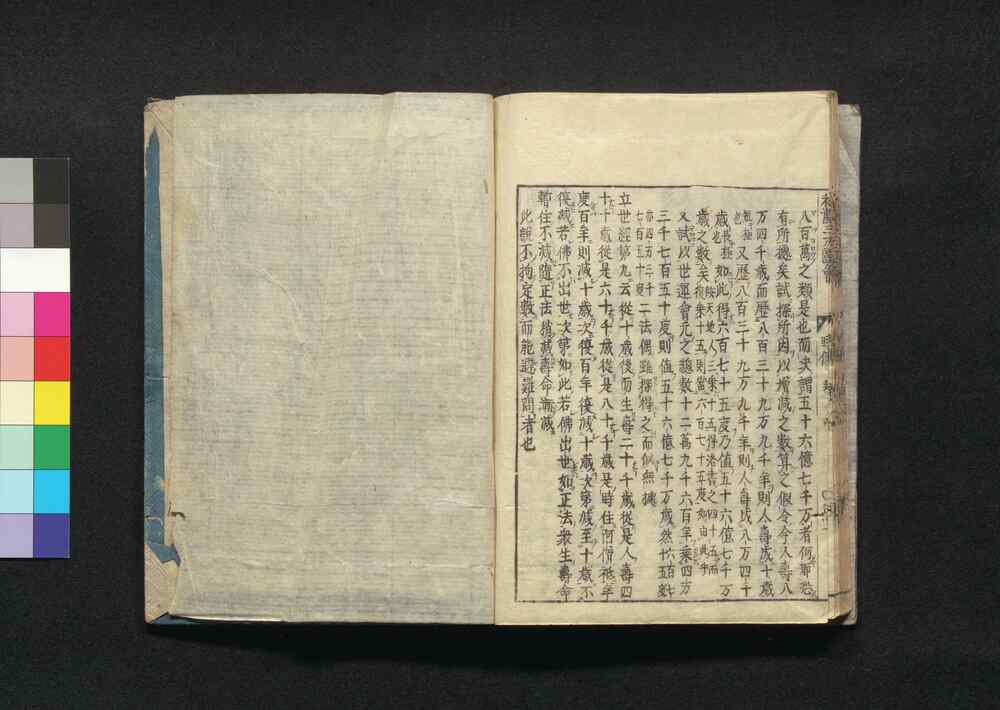 八百萬之類是也而夫謂五十六億七千万者何耶恐
有所據矣試探所因以增減之數算之假令今人壽八
万四千歲而歷八百三十九万九千年則人壽成十歲
又歷八百三十九万九千年則人壽成八万四千
歲如此得六百七十五度乃值五十六億七千万
歲之數矣
又試以世運會元之數十二萬九千六百年乘四万
三千七百五十度則值五十六億七千万歲然
二法偶雖探得之而似無據
立世經第九云從十歲後而生壽二十千歲從是人壽四
十千歲從是六十千歲從是八十千歲是時住阿僧祇年
度百年則減十歲次復百年復減十歲次第減至十歲不
復減若佛不出世次第如此若佛出世如正法衆生壽命
暫住不減隨正法稍減壽命漸減
此說不拘定數而能避難問者也